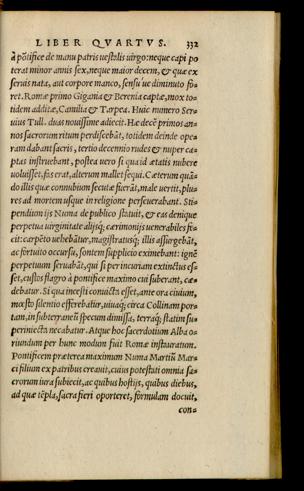 LIBER QVARTVS. 332
à põtifice de manu patris uestalis uirgo: neque capi po
terat minor annis sex, neque maior decem, & quæ ex
seruis nata, aut corpore manco, sensú ue diminuto fo-
ret. Romæ primo Gigania & Berenia captæ, mox to-
tidem additæ, Camilia & Tarpea. Huic numero Ser-
uius Tull. duas nouissime adiecit. Hæ decē primos an-
nos sacrorum ritum perdiscebāt, totidem deinde ope-
ram dabant sacris, tertio decennio rudes & nuper ca-
ptas instruebant, postea uero si qua id ætatis nubere
uoluisset, fās erat, alterum mallet sequi. Cæterum quā-
do illis quæ connubium secutæ fuerāt, male uertit, plu-
res ad mortem usque in religione perseuerabant. Sti-
pendium ijs Numa de publico statuit, & eas denique
perpetua uirginitate alijsq; cærimonijs uenerabiles fe-
cit: carpēto uehebātur, magistratusq; illis assurgebāt,
ac fortuito occursu, sontem supplicio eximebant: ignē
perpetuum seruabāt, qui si per incuriam extinctus es-
set, custos flagro à pontifice maximo cui suberant, cæ-
debatur. Si qua incesti conuicta esset, ante ora ciuium,
mœsto silentio efferebatur, uiuaq; circa Collinam por-
tam, in subterraneū specum dimissa, terraq; statim su-
periniecta necabatur. Atque hoc sacerdotium Alba o-
riundum per hunc modum fuit Romæ instauratum.
Pontificem præterea maximum Numa Martiū Mar-
ci filium ex patribus creauit, cuius potestati omnia sa-
crorum iura subiecit, ac quibus hostijs, quibus diebus,
ad quæ tēpla, sacra fieri oporteret, formulam docuit,
con-